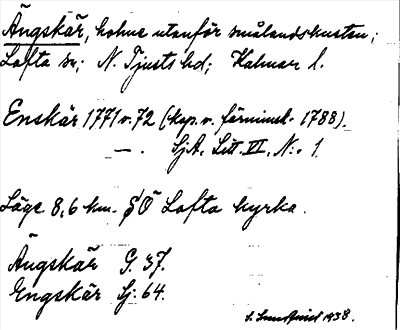 Ängskär, holme utanför smålandskusten;
Lofta sn; N. Tjusts hd; Kalmar l.
Enskär 1771 o. 72 (kop. o. förminsk. 1788).
— . SjA. Litt. VI, N:o 1
Läge 8,6 km. SÖ Lofta kyrka.
Ängskär G. 37.
Engskär Sj. 64.
1938.